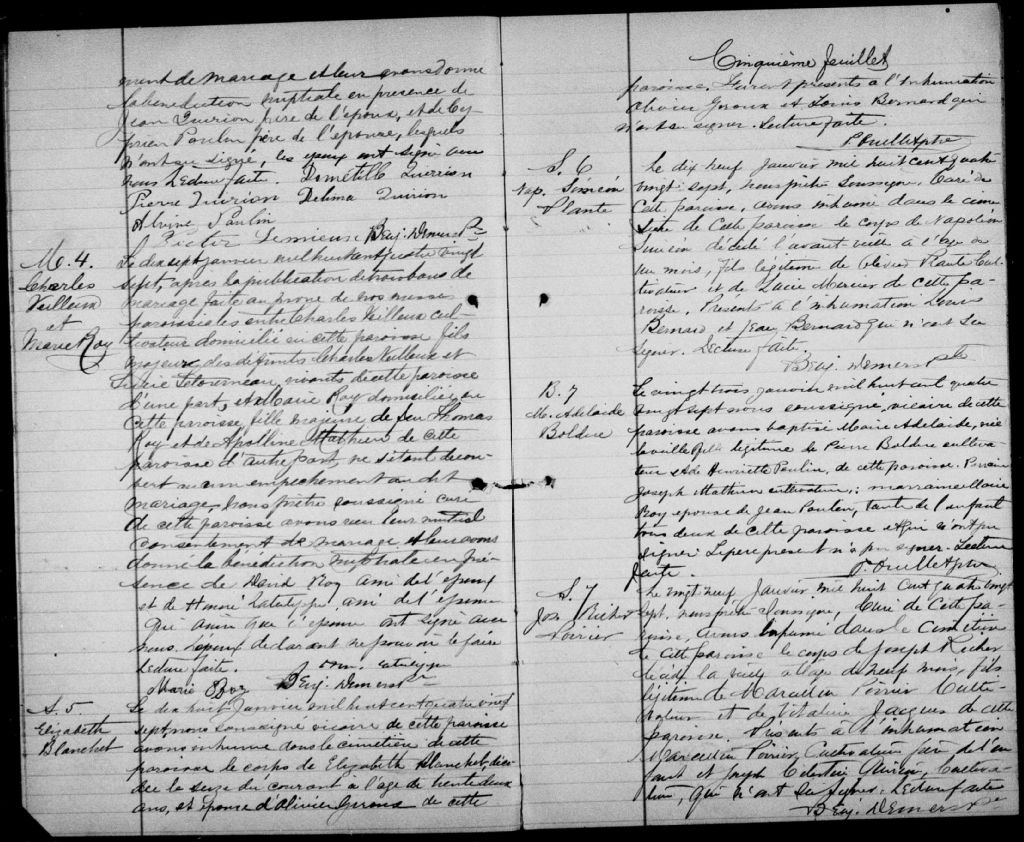 ment de mariage et leur avons donné
la bénédiction nuptiale en présence de
Jean Quirion père de l'époux, et de Cy-
prien Poulin père de l'épouse, lesquels
n'ont su signé, les époux ont signé avec
nous. Lecture faite. Dométille Querrion
Pierre Quirion Delima Quirion
Alvine Poulin
Lemieux Benj. Demers Ptre
M. 4.
Charles
Veilleux
et
Marie Roy
Le dix sept janvier mil huit cent quatre vingt
sept, après la publication de trois bans de
mariage faite au prône de nos messes
paroissiales entre Charles Veilleux cul-
tivateur domicilié en cette paroisse fils
majeur des défunts Charles Veilleux et
Letourneau, vivants de cette paroisse
d'une part, et Marie Roy domiciliée en
cette paroisse, fille majeure de feu Thomas
Roy et de Apolline Mathieu de cette
paroisse d'autre part, ne s'étant décou-
vert aucun empêchement au dit
mariage, nous prêtre soussigné curé
de cette paroisse avons reçu leur mutuel
consentement de mariage et leur avons
donné la bénédiction nuptiale en pré-
sence de David Roy ami de l'époux
et de Honoré Latulippe ami de l'épouse
qui ainsi que l'épouse ont signé avec
nous. L'époux déclarant ne pouvoir le faire
Lecture faite. Latulippe
Marie Roy Benj. Demers Ptre
S. 5.
Elizabeth
Blanchet
Le dix huit janvier mil huit cent quatre vingt
sept, nous soussigné vicaire de cette paroisse
avons inhumé dans le cimetière de cette
paroisse le corps de Elizabeth Blanchet décé-
dée le seize du courant à l'âge de trente deux
ans, et épouse d'Olivier Giroux de cette
Cinquième feuillet
paroisse. Furent présents à l'inhumation
Olivier Giroux et Louis Bernard qui
n'ont su signer. Lecture faite.
Ouellet ptre
S. 6
Nap. Siméon
Plante
Le dix neuf Janvier mil huit cent quatre
vingt-sept, nous prêtre soussigné, Curé de
cette paroisse, avons inhumé dans le cime-
tière de cette paroisse le corps de Napoléon
Siméon décédé l'avant veille à l'âge de
un mois, fils légitime de Olivier Plante Cul-
tivateur et de Lucie Mercier de cette pa-
roisse. Présents à l'inhumation Louis
Bernard et Jean Bernard qui n'ont su
signer. Lecture faite.
Benj. Demers Ptre
B. 7
M. Adelaide
Bolduc
Le vingt trois janvier mil huit cent quatre
vingt sept nous soussigné, vicaire de cette
paroisse avons baptisé Marie Adelaide, née
la veille fille légitime de Pierre Bolduc cultiva-
teur et de Henriette Poulin, de cette paroisse. Parrain
Joseph Mathieu cultivateur; marraine Marie
Roy epouse de Jean Poulin, tante de l'enfant
tous deux de cette paroisse et qui n'ont pu
signer. Le père present n'a pu signer. Lecture
faite. Ouellet ptre
S. 7
Jos. Richer
Poirier
Le vingt neuf Janvier mil huit cent quatre vingt
sept, nous prêtre soussigné, Curé de cette pa-
roisse, avons inhumé dans le cimetière
de cette paroisse le corps de Joseph Richer
décédé la veille à l'age de neuf mois, fils
légitime de Marcellin Poirier Culti-
vateur et de Vitaline Jacques de cette
paroisse. Présents à l'inhumation
Marcellin Poirier, Cultivateur père de l'en-
fant et Joseph Celestin, Cultiva-
teur, qui n'ont su signer. Lecture faite
Benj. Demers Ptre